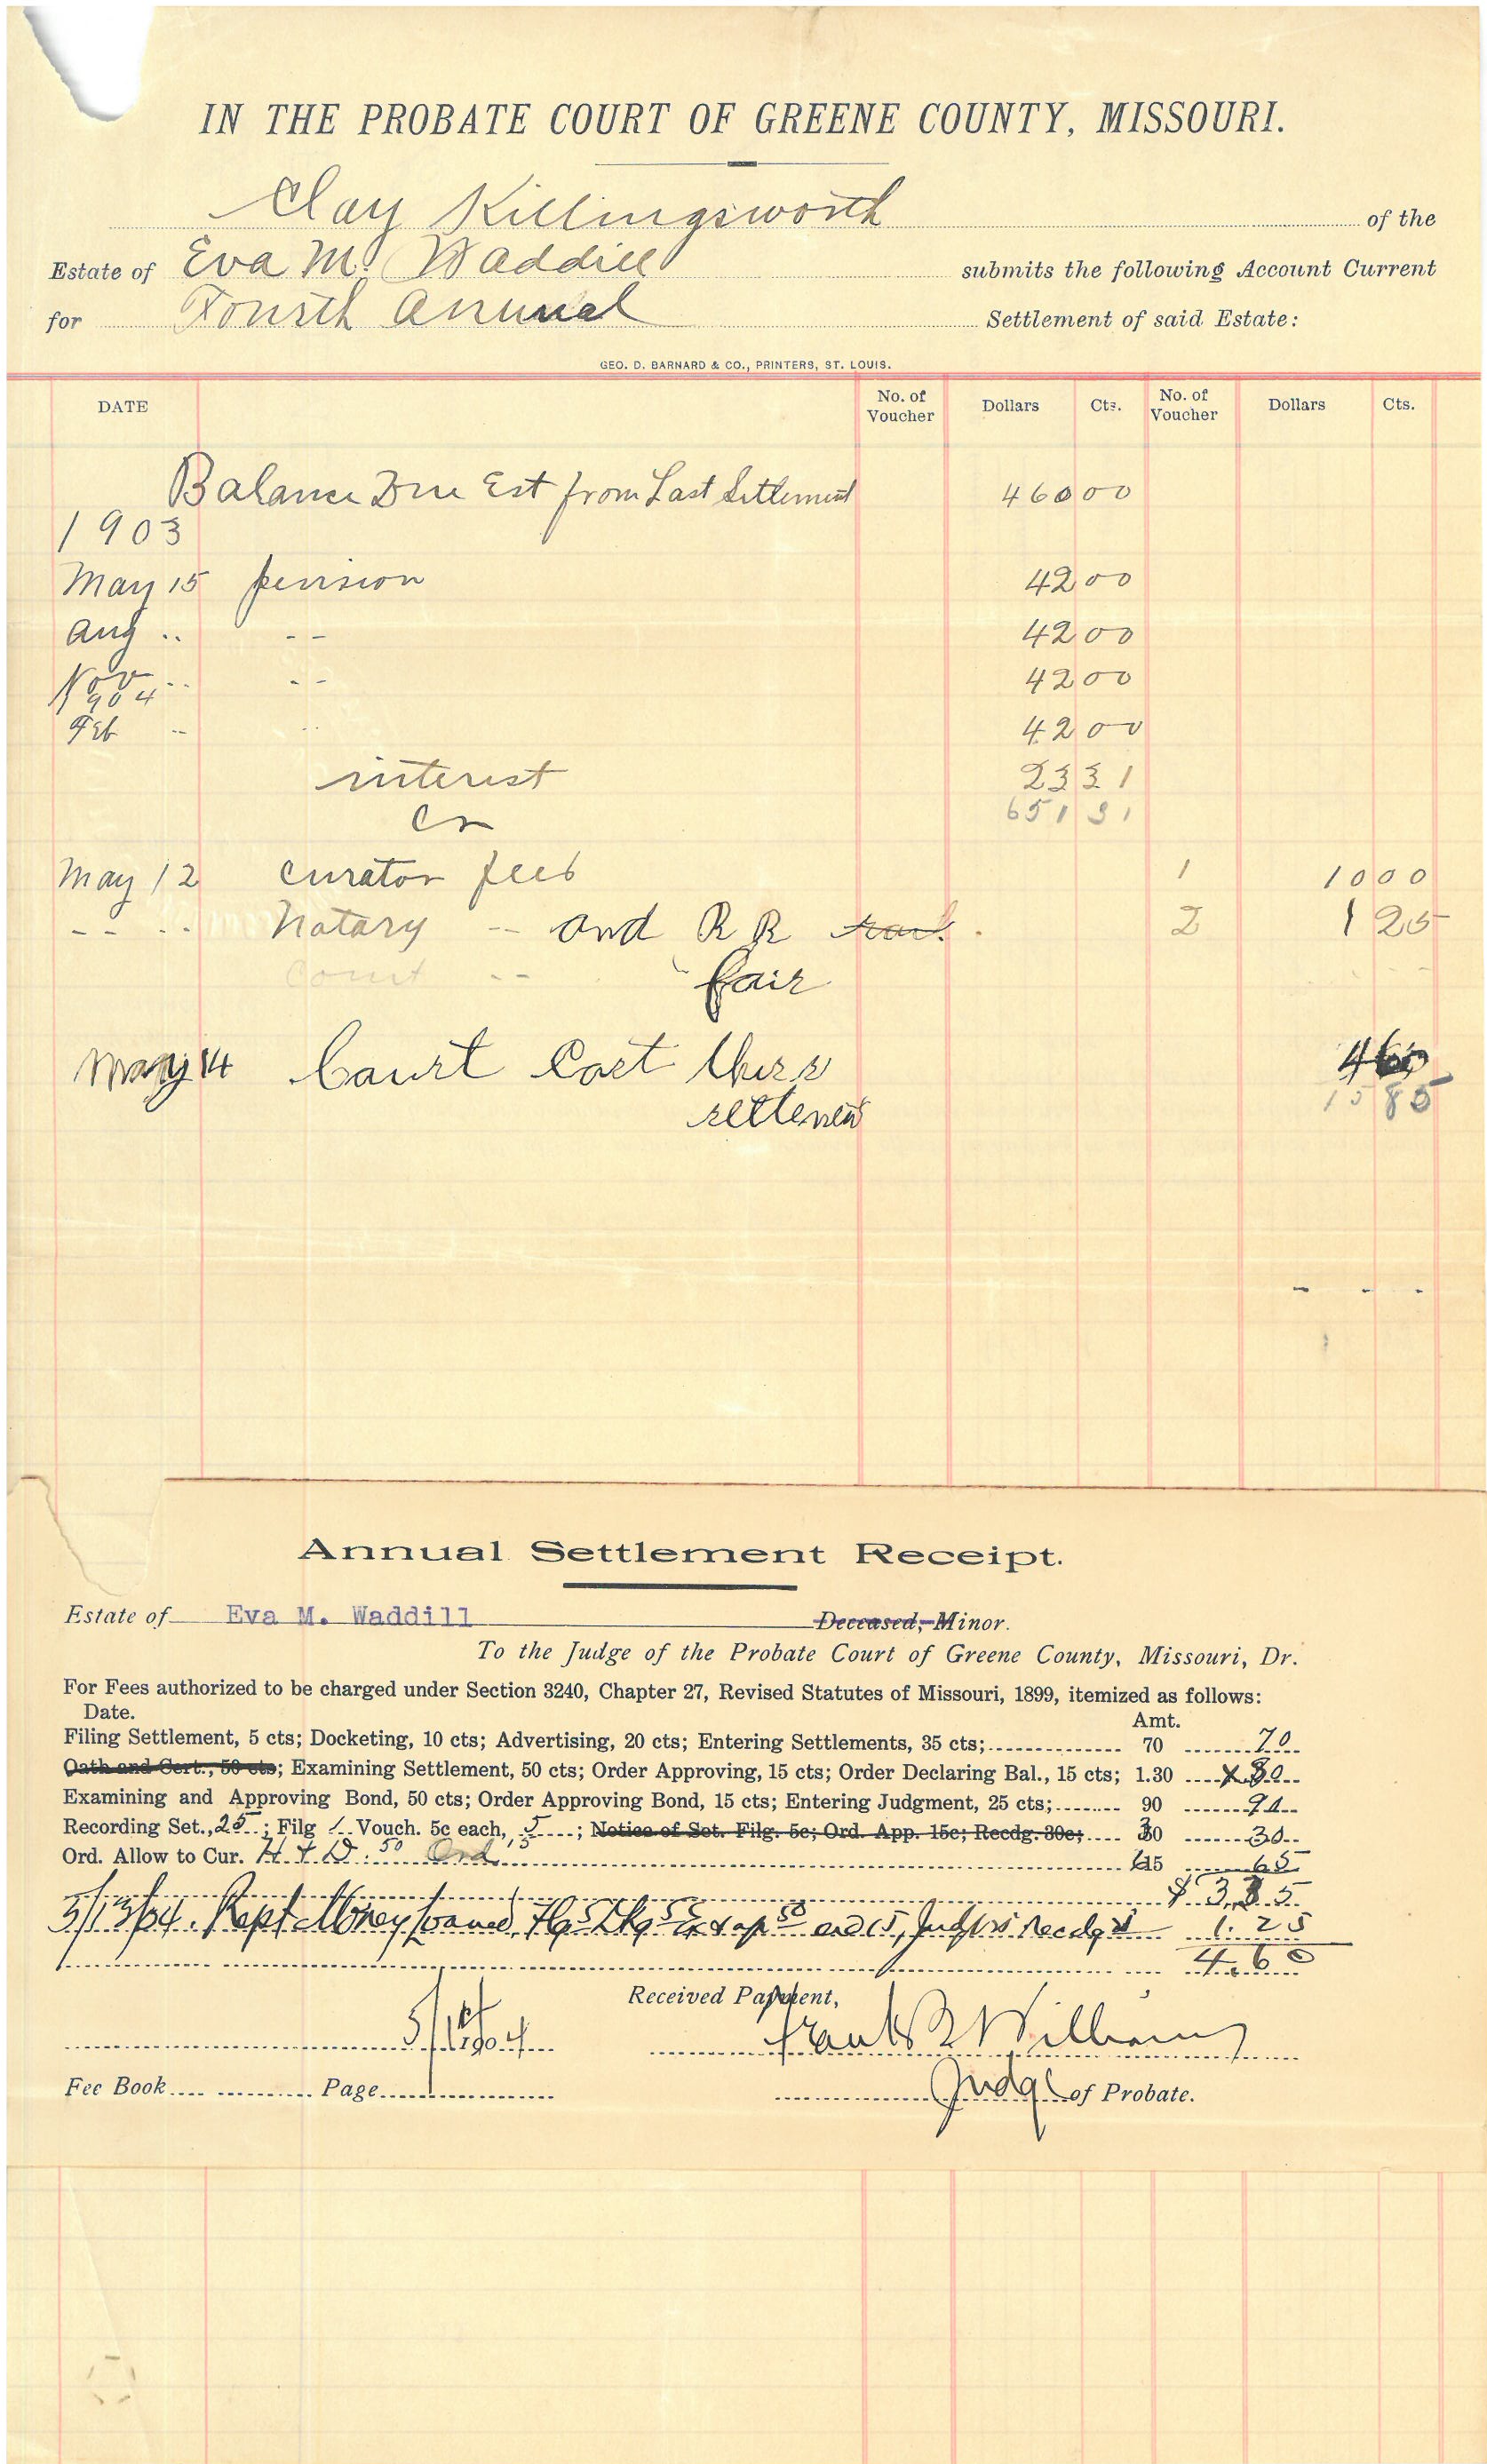 IN THE PROBATE COURT OF GREENE COUNTY, MISSOURI.
Clay Killingsworth of the
Estate of Eva M. Waddill submits the following Account Current
for Fourth Annual Settlement of said Estate:
GEO. D. BARNARD & CO., PRINTERS, ST. LOUIS.
DATE No. of Voucher Dollars Cts. No. of Voucher Dollars Cts.
Balance Due Est from Last Settlement 460 00
1903
May 15 pension 42 00
Aug .. -- 42 00
Nov .. -- 42 00
1904
Feb -- .. 42 00
interest 23 31
651 31
Cr
May 12 curator fees 1 10 00
-- .. Notary -- and R R 2 1 25
Court -- fair
May 14 Court Cost this 4 60
settlement 15 85
Annual Settlement Receipt.
Estate of Eva M. Waddill Deceased, Minor.
To the Judge of the Probate Court of Greene County, Missouri, Dr.
For Fees authorized to be charged under Section 3240, Chapter 27, Revised Statutes of Missouri, 1899, itemized as follows:
Date. Amt.
Filing Settlement, 5 cts; Docketing, 10 cts; Advertising, 20 cts; Entering Settlements, 35 cts; 70 70
Oath and Cert., 50 cts; Examining Settlement, 50 cts; Order Approving, 15 cts; Order Declaring Bal., 15 cts; 1.30 80
Examining and Approving Bond, 50 cts; Order Approving Bond, 15 cts; Entering Judgment, 25 cts; 90 90
Recording Set., 25; Filg 1 Vouch. 5c each, 5; Notice of Set. Filg. 5c; Ord. App. 15c; Recdg. 30c; 30 30
Ord. Allow to Cur. H & D. 50 Ord 15 65
$ 3.35
Rept Money Loaned, 1.25
4.60
Received Payment,
1904
Williams
Fee Book Page Judge of Probate.